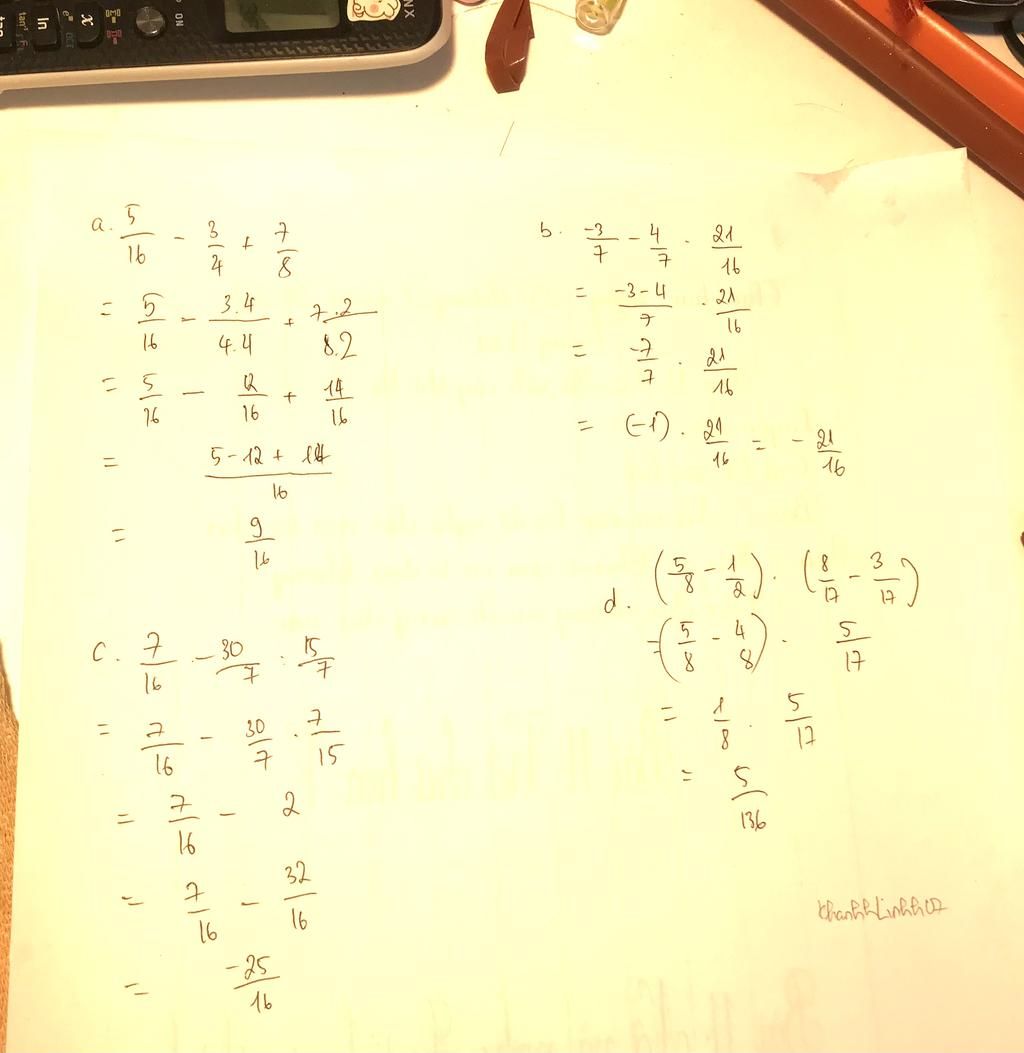 NX
ON
x
ln
tan
a. 5/16 - 3/4 + 7/8
= 5/16 - 3.4/4.4 + 7.2/8.2
= 5/16 - 12/16 + 14/16
= 5-12+14/16
= 9/16
b. -3/7 - 4/7 . 21/16
= -3-4/7 . 21/16
= -7/7 . 21/16
= (-1) . 21/16 = - 21/16
c. 7/16 - 30/7 : 15/7
= 7/16 - 30/7 . 7/15
= 7/16 - 2
= 7/16 - 32/16
= -25/16
d. (5/8 - 1/2) . (8/17 - 3/17)
=(5/8 - 4/8) . 5/17
= 1/8 . 5/17
= 5/136
khanhhLinhh07